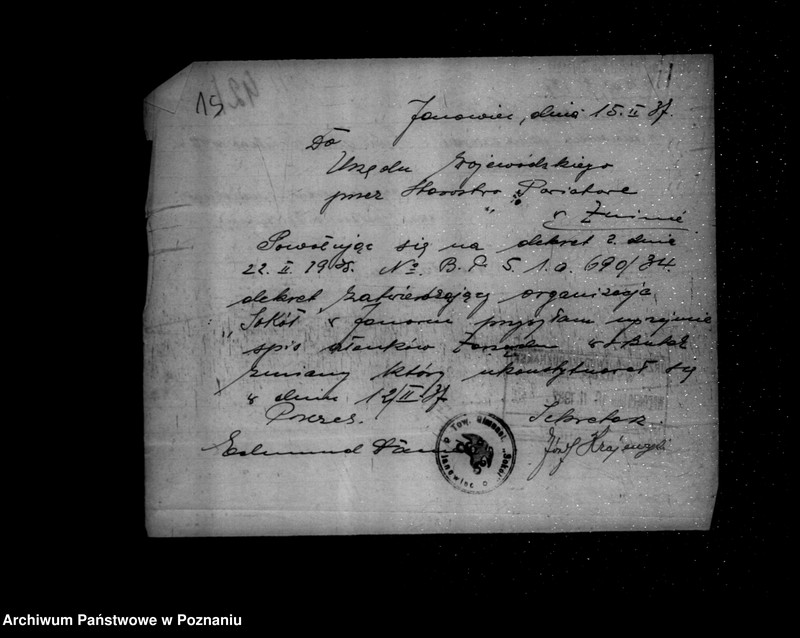 19
Janowiec, dnia 15. II 37.
Do
Urzędu Wojewódzkiego
przez Starostwo Powiatowe
w Żninie
Powołując się na dekret z dnia
22. II. 19 r. No. B. P. 5. 1. a. 690/34.
dekret zatwierdzający organizacja
"Sokół" w Janowcu przesyłam uprzejmie
spis członków Zarządu
zmiany który ukonstytuował się
w dniu 12/II 37
Prezes. Sekretarz.
Edmund Józef Krajewski
Tow. Gimnast. "Sokół"
Janowiec
Archiwum Państwowe w Poznaniu